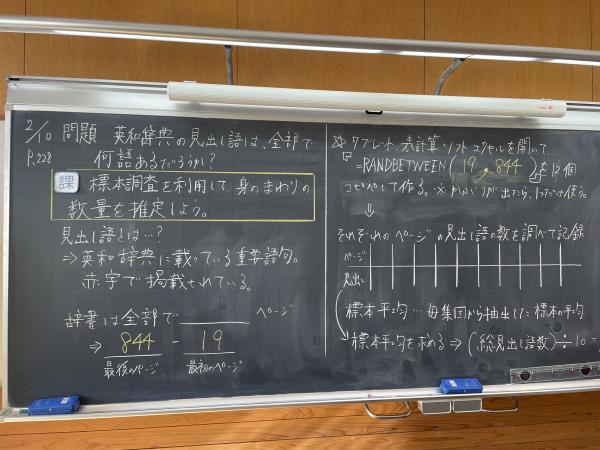 2/10 問題 英和辞典の見出し語は、全部で
P.228 何語あるだろうか?
課 標本調査を利用して、身のまわりの
数量を推定しよう。
見出し語とは…?
⇒英和辞典に載っている重要語句。
赤字で掲載されている。
辞書は全部で ページ
⇒ 844 - 19
最後のページ 最初のページ
タブレット、表計算ソフト エクセルを開いて
=RANDBETWEEN(19, 844)を12個
コピペして作る。※かぶりが出たら、1つだけ使う。
⇓
それぞれのページの見出し語の数を調べて記録
ページ
見出し
標本平均…母集団から抽出した標本の平均
標本平均を求める⇒(総見出し語数)÷10=